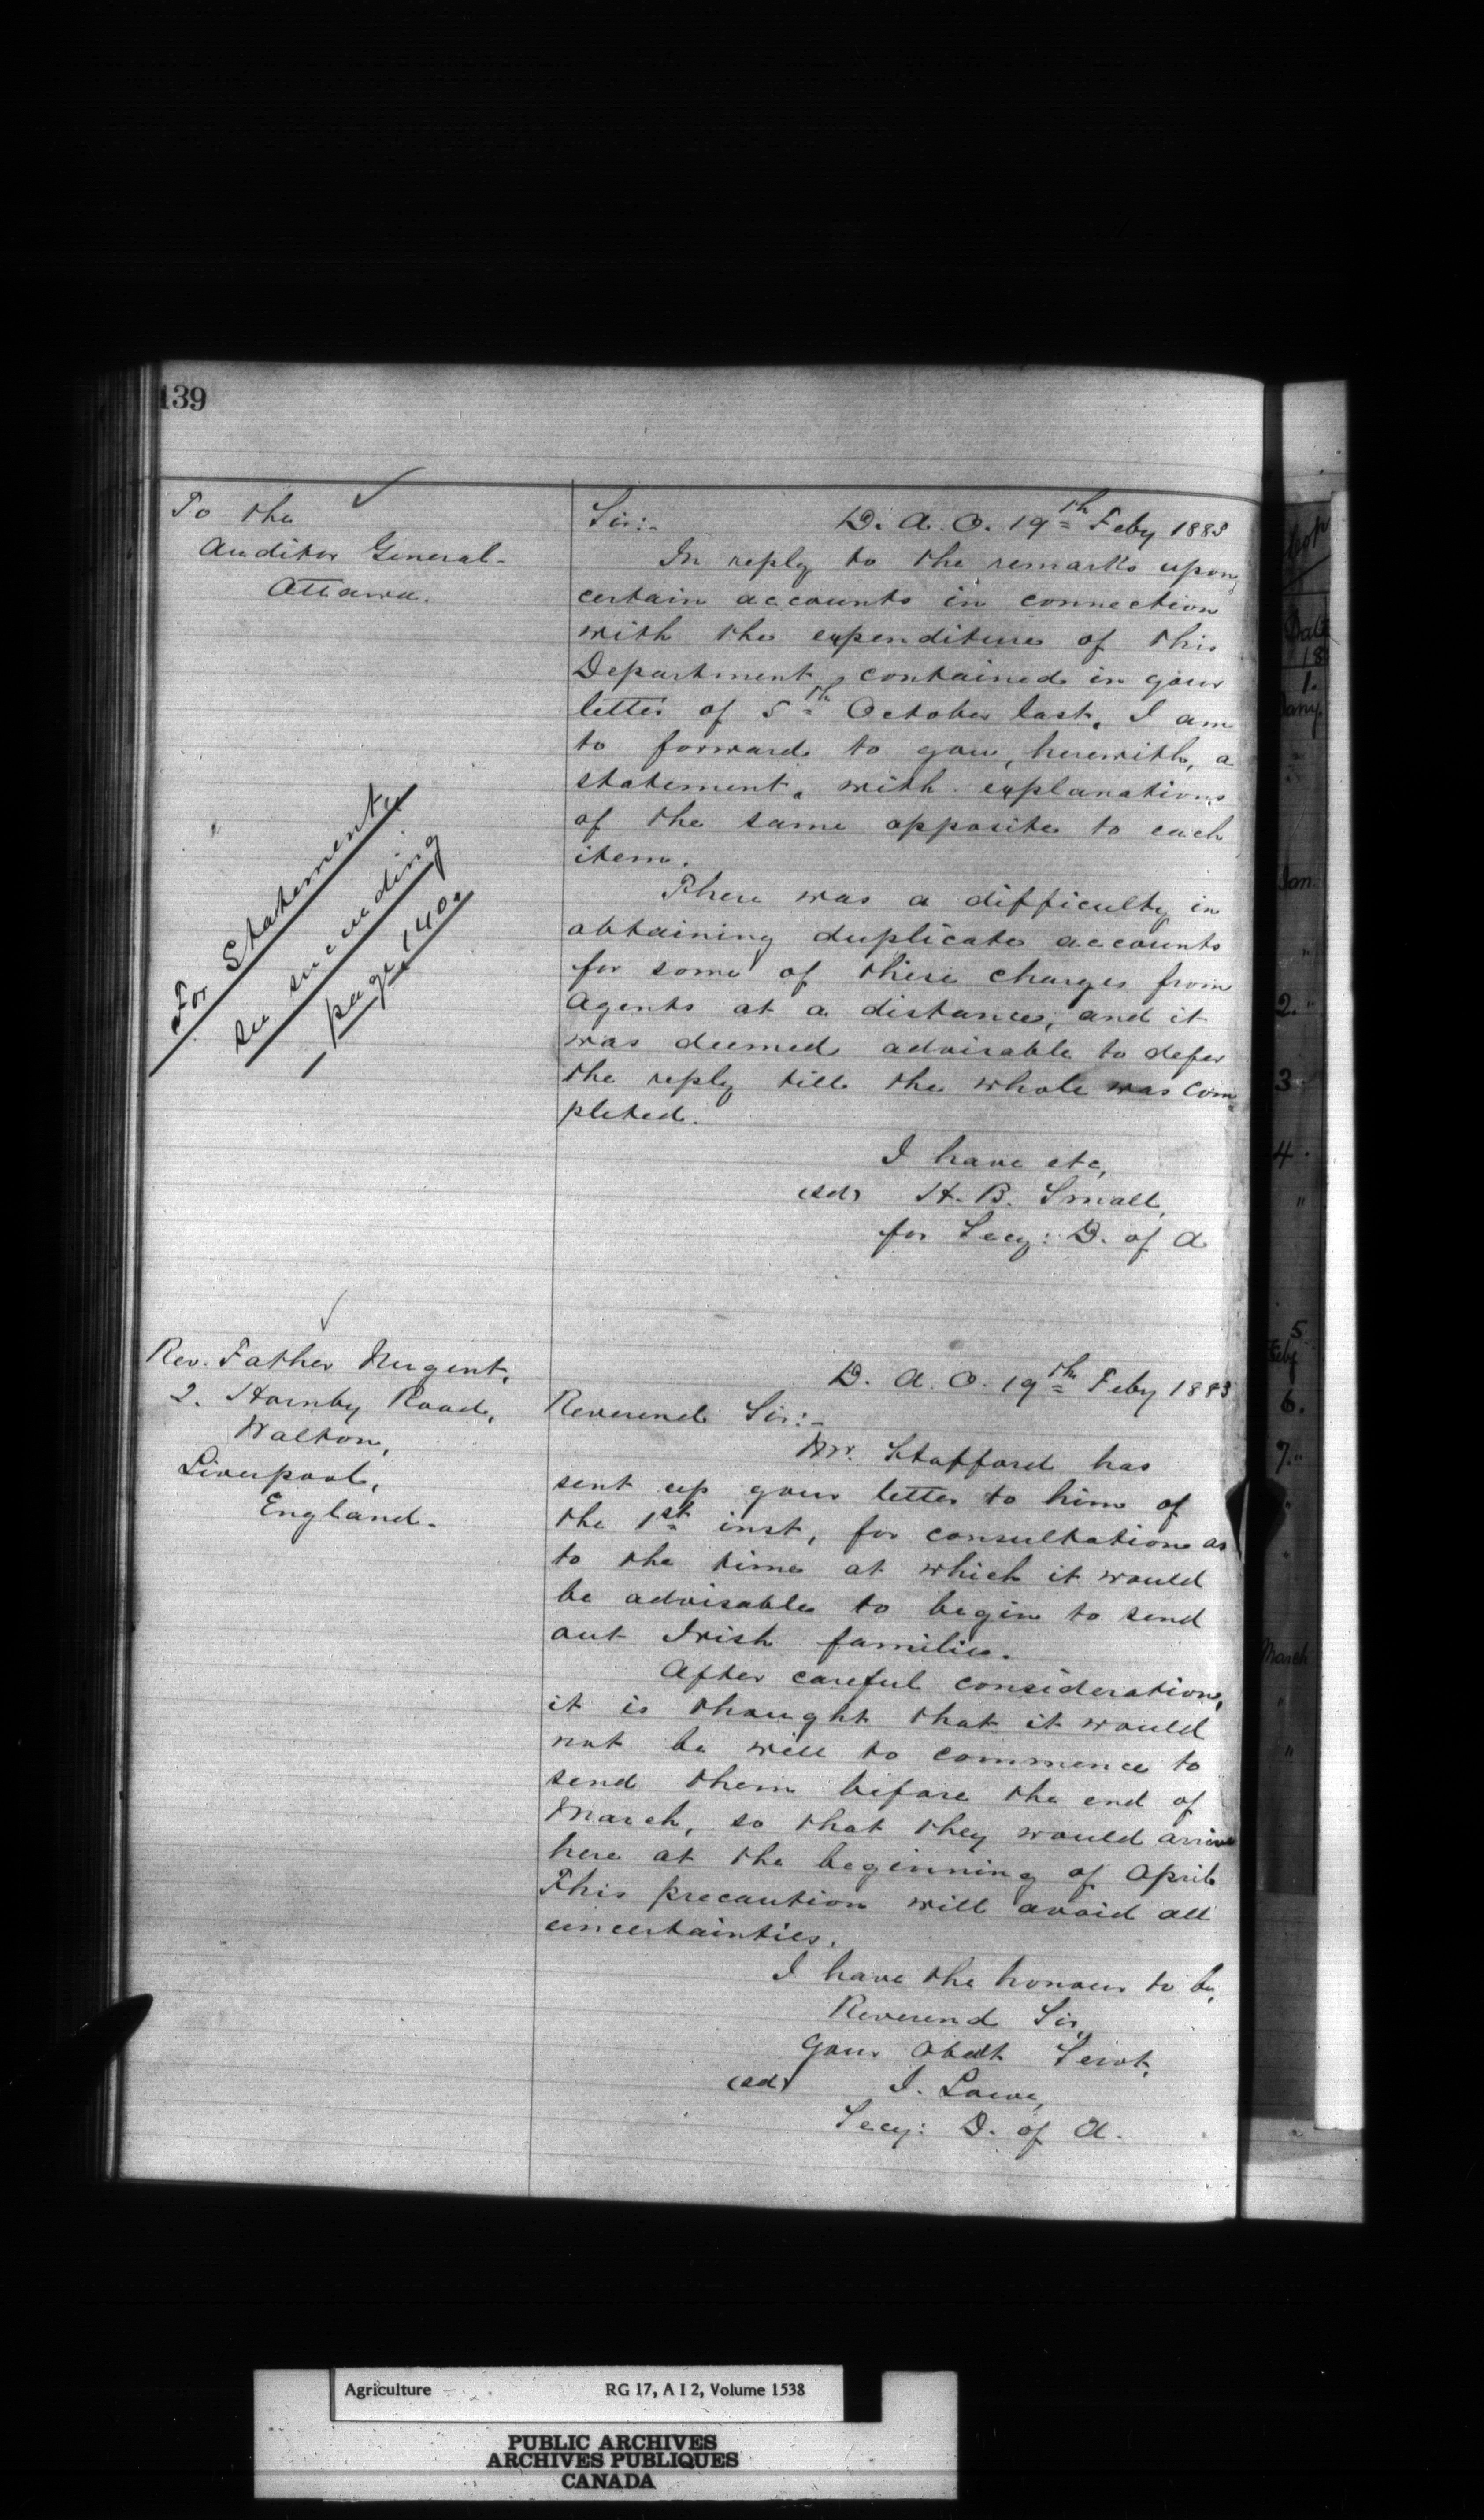 139
To the
Auditor General.
Ottawa.
Sir:- D. A. O. 19th Feby 1883
In reply to the remarks upon
certain accounts in connection
with the expenditure of this
Department, contained in your
letter of 5th October last, I am
to forward to you, herewith, a
statement, with explanations
of the same opposite to each
item.
There was a difficulty in
obtaining duplicate accounts
for some of these charges from
Agents at a distance, and it
was deemed advisable to defer
the reply till the whole was com
pleted.
I have etc,
(sd) H. B. Small,
for Secy: D. of A
For Statement
see succeeding
page 140.
Rev. Father Nugent,
2. Hornby Road,
Walton,
Liverpool,
England.
D. A. O. 19th Feby 1883
Reverend Sir:-
Mr. Stafford has
sent up your letter to him of
the 1st inst, for consultation as
to the time at which it would
be advisable to begin to send
out Irish families.
After careful consideration,
it is thought that it would
not be well to commence to
send them before the end of
March, so that they would arrive
here at the beginning of April
This precaution will avoid all
uncertainties.
I have the honour to be,
Reverend Sir,
Your Obedt Servt,
(sd) J. Lowe,
Secy: D. of A.
Date
18
1.
Jany.
Jan.
"
2. "
3
4
"
5
Feby
6.
7. "
March
"
"
Agriculture RG 17, A I 2, Volume 1538
PUBLIC ARCHIVES
ARCHIVES PUBLIQUES
CANADA